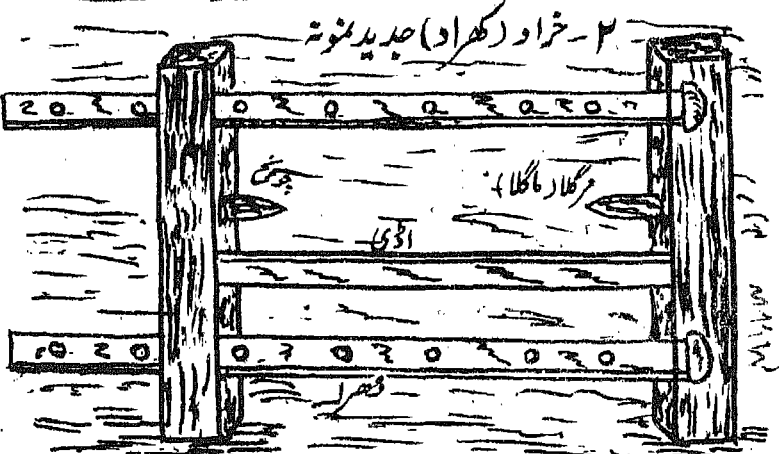 ۲ - خراد (کھراد) جدید نمونہ
چونچ
مرگلا (ماگلا)
اڈی